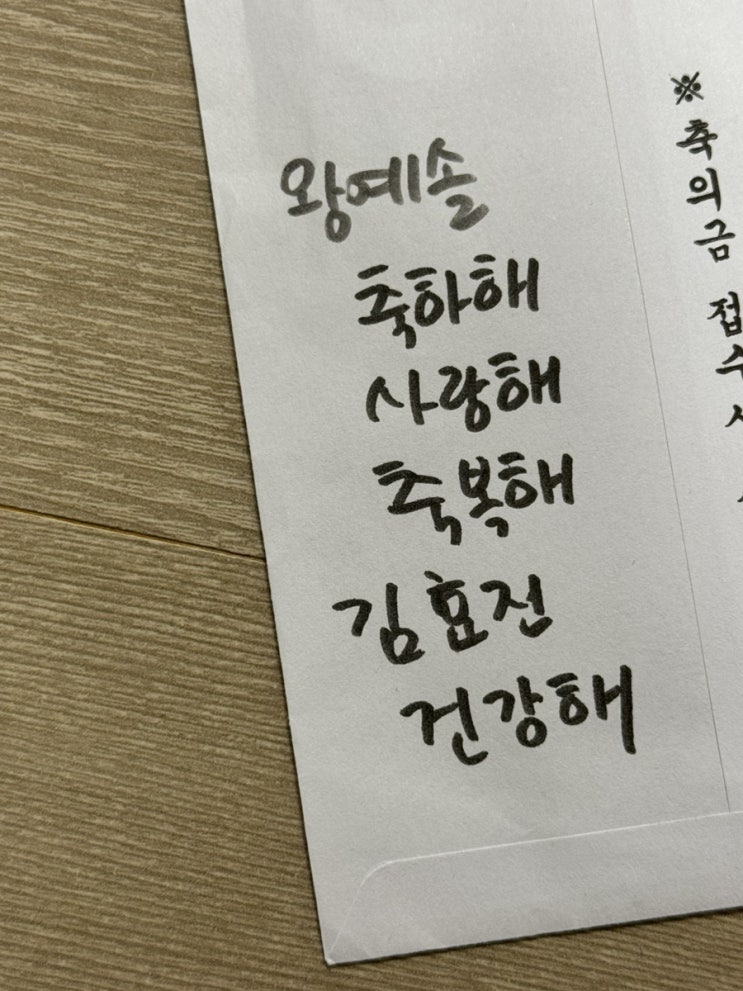 왕예솔
축하해
사랑해
축복해
김효진
건강해
※축의금 접수